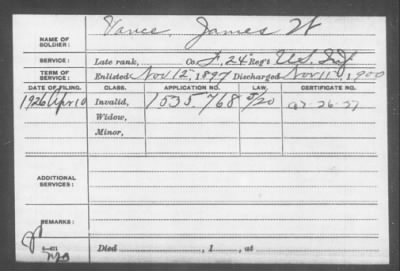 Vance, James W
NAME OF
SOLDIER:
SERVICE: Late rank, Co. F, 24 Reg't U.S. Inf
TERM OF
SERVICE: Enlisted Nov 12", 1897 Discharged Nov 11", 1900
DATE OF FILING. CLASS. APPLICATION NO. LAW. CERTIFICATE NO.
1926 Apr 10 Invalid, 1535.768 5/20
Widow,
Minor,
ADDITIONAL
SERVICES:
REMARKS:
Died , 1 , at